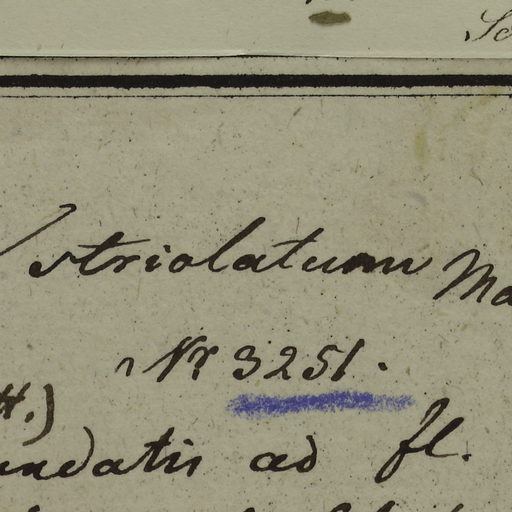 striolatum Ma
Nr. 3251.
H.)
undatis ad fl.